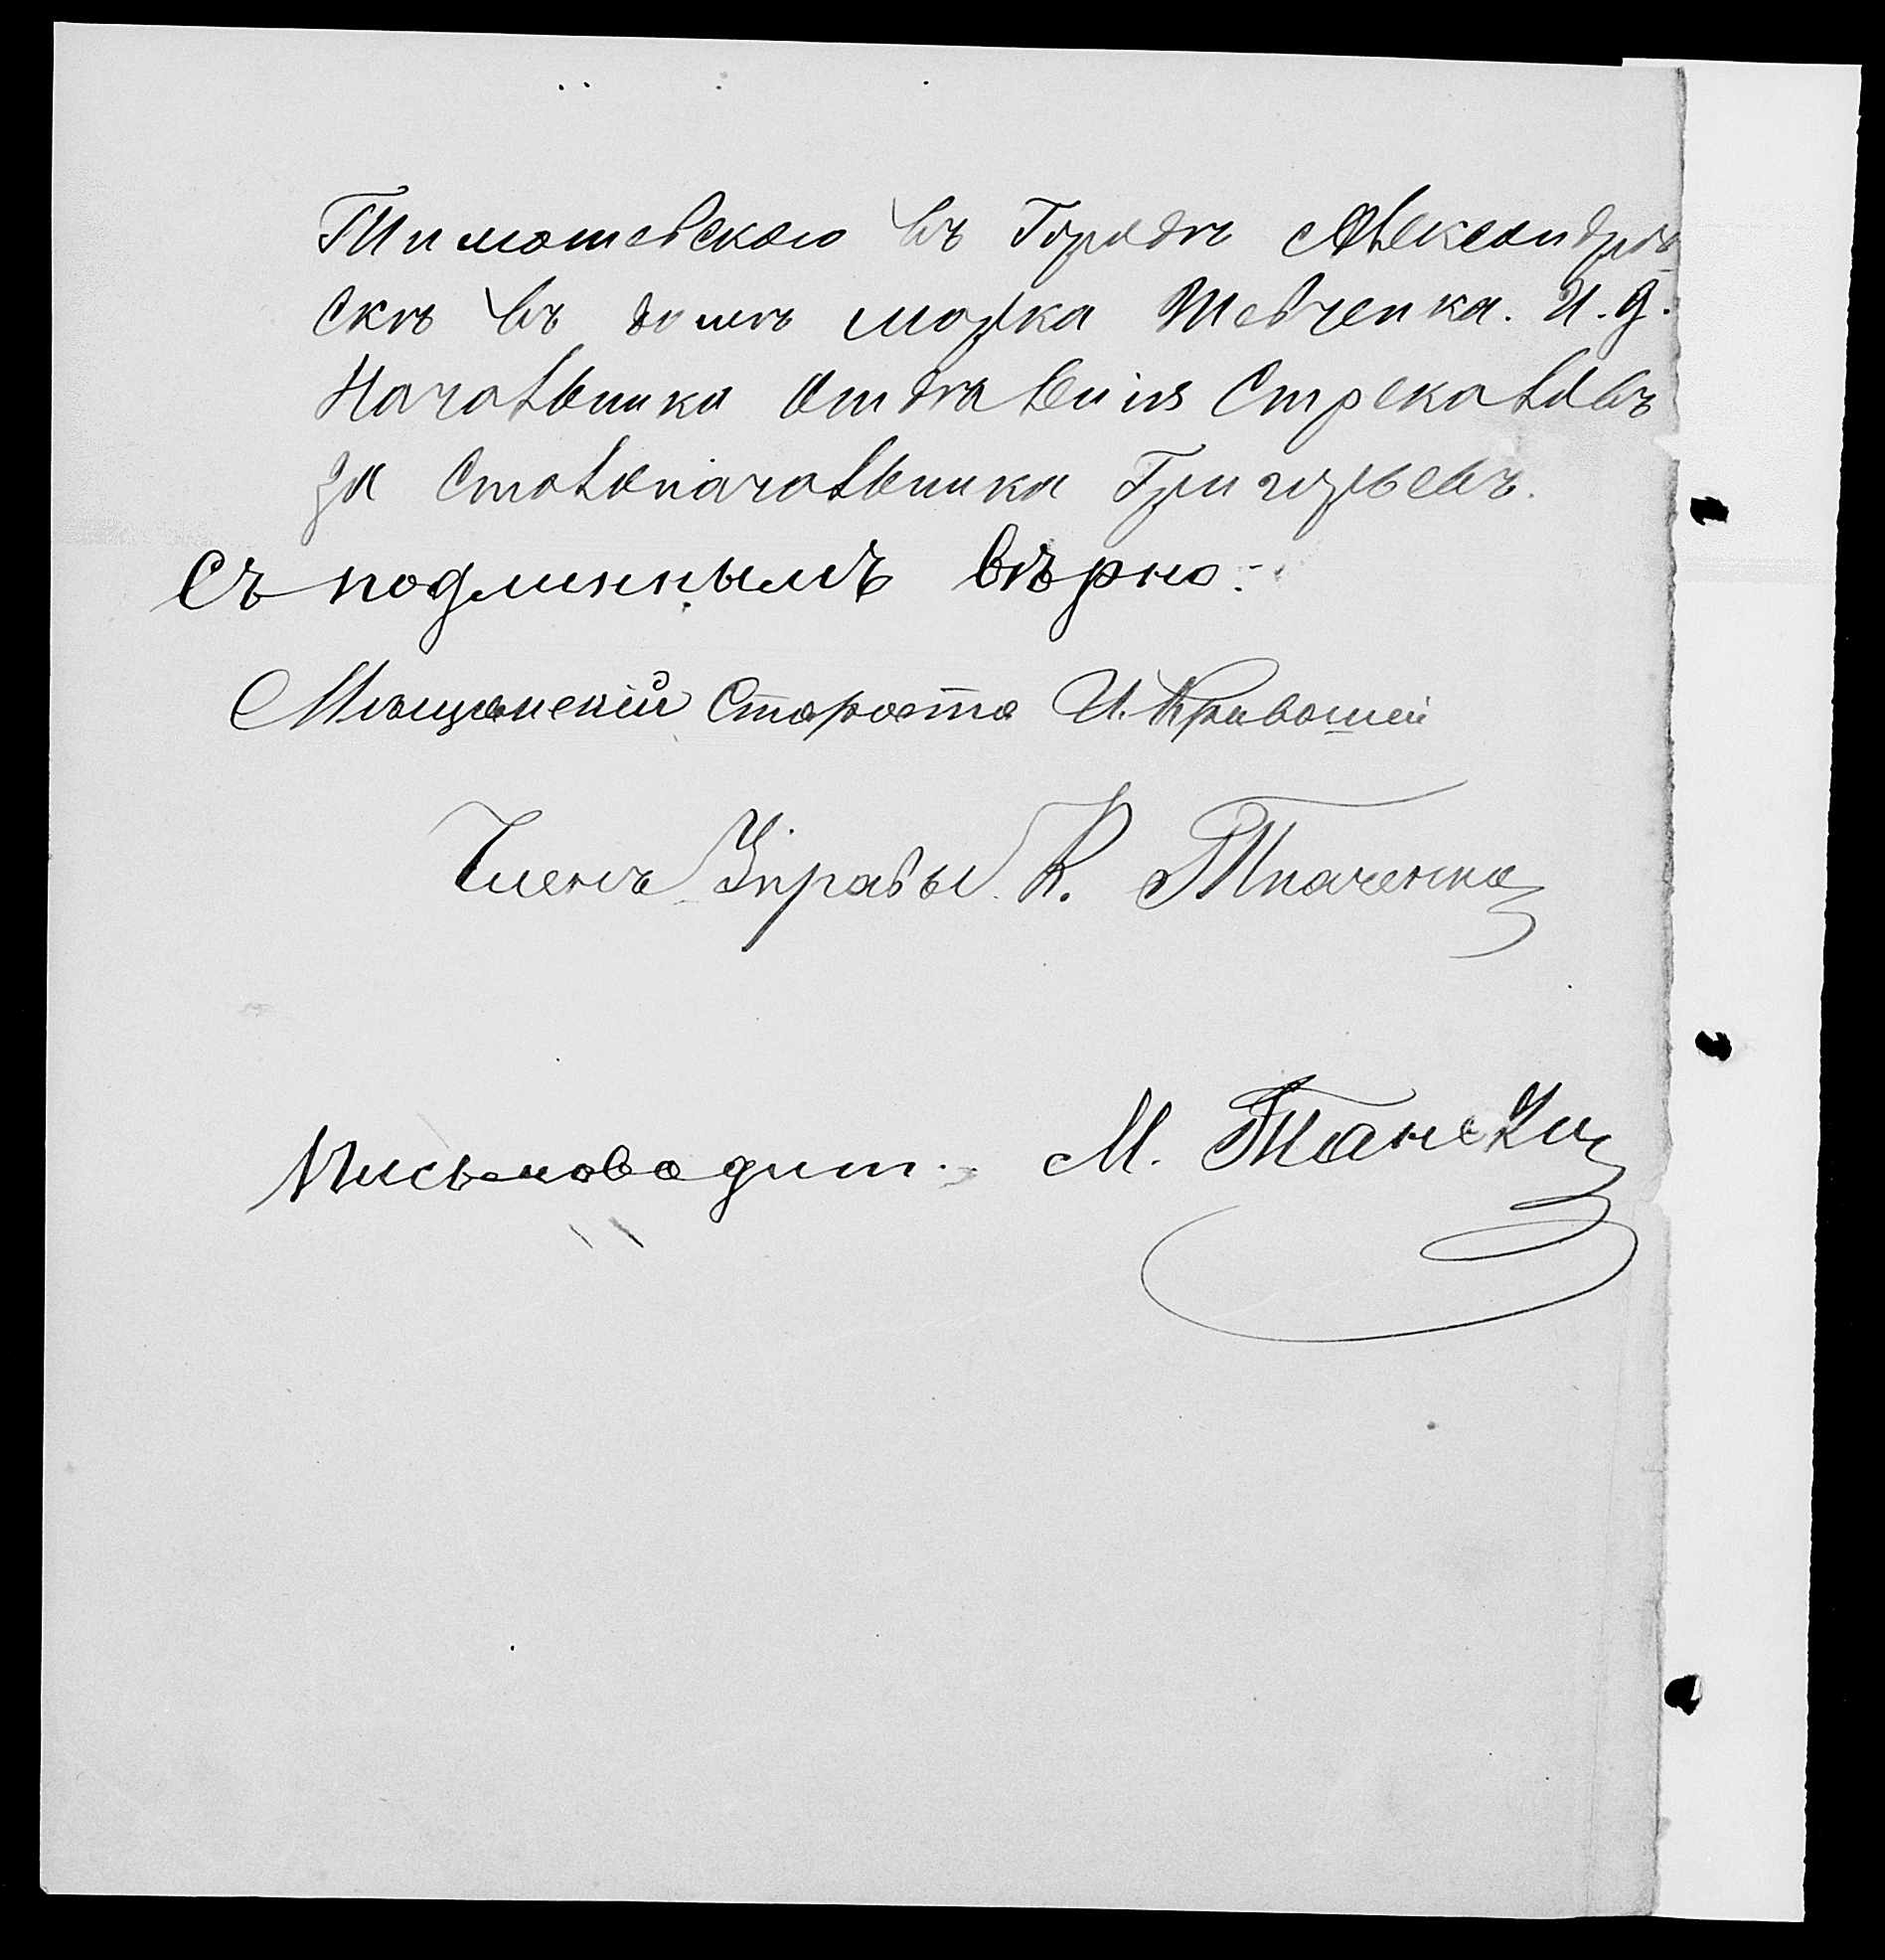 Тимошевского въ Городѣ Александров
скѣ въ домѣ марка Шевченка. И. д.
Начальника Отдѣленія Стрекаловъ
за Столоначальника Григорьевъ.
Съ подлиннымъ вѣрно:
Мѣщанскій Староста И. Кривошей
Членъ Управы К. Ткаченко
Письмоводит. М. Танскій